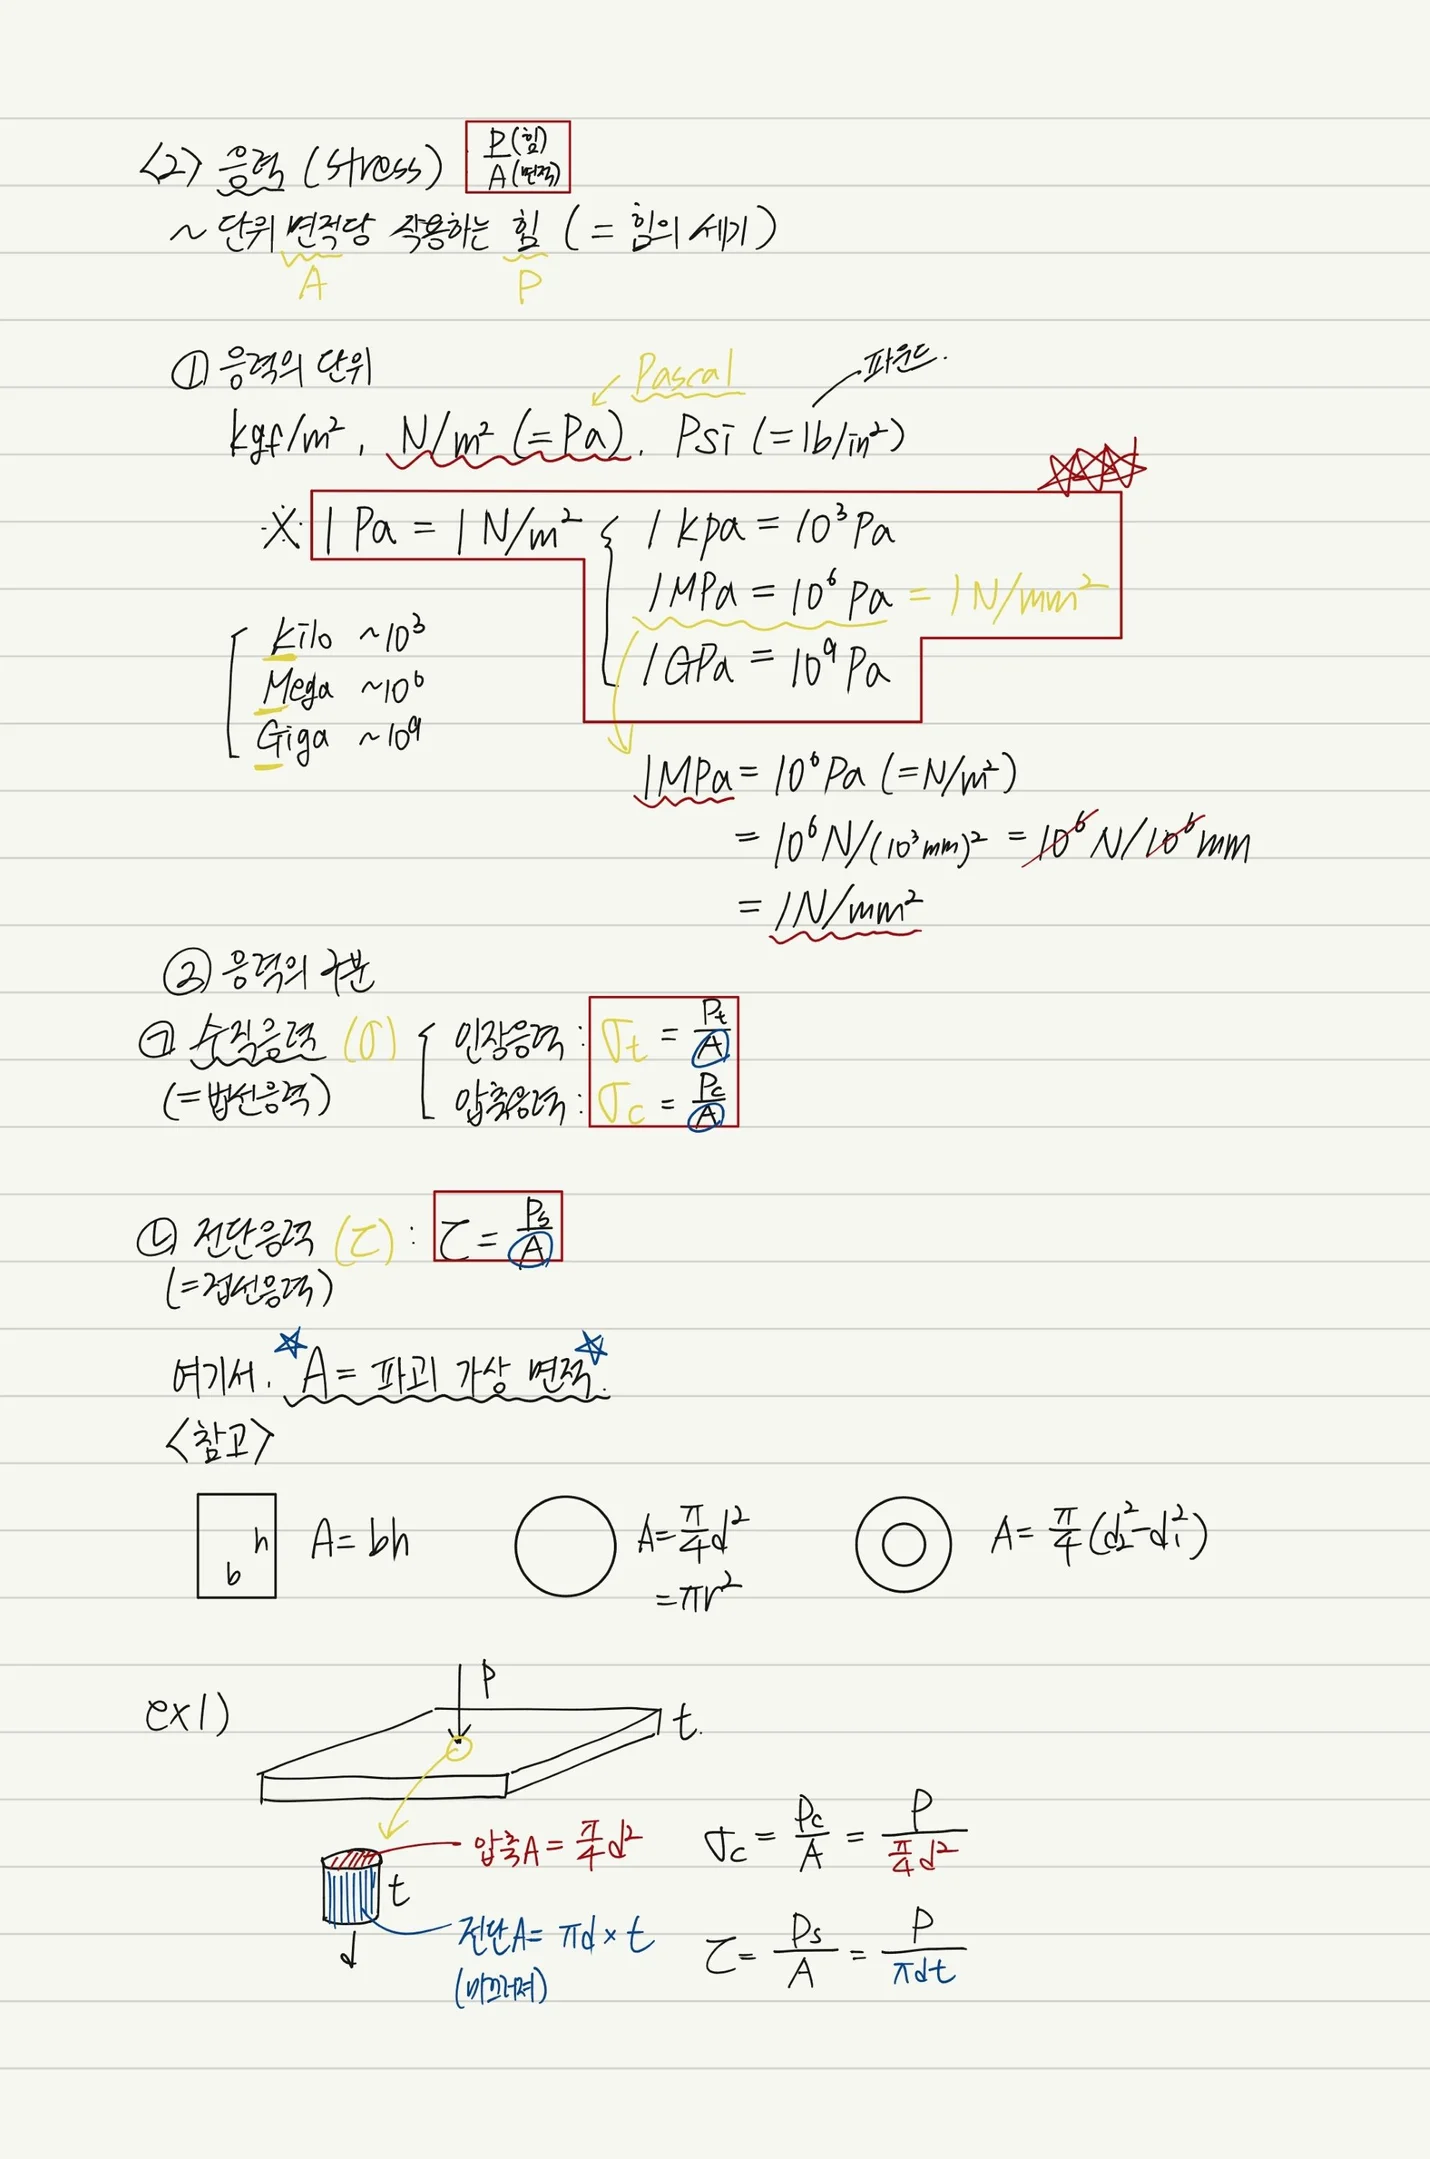 <2> 응력 (stress) P(힘)/A(면적)
~ 단위 면적당 작용하는 힘 (= 힘의 세기)
A P
① 응력의 단위 Pascal 파운드.
kgf/m², N/m² (=Pa), Psi (=lb/in²)
※ 1 Pa = 1 N/m² { 1 kpa = 10³ Pa
1 MPa = 10⁶ Pa = 1 N/mm²
1 GPa = 10⁹ Pa
kilo ~10³
Mega ~10⁶
Giga ~10⁹
1MPa = 10⁶ Pa (=N/m²)
= 10⁶ N/(10³mm)² = 10⁶ N/10⁶ mm
= 1N/mm²
② 응력의 구분
㉠ 수직응력 (σ) { 인장응력 : σt = Pt/A
(=법선응력) 압축응력 : σc = Pc/A
㉡ 전단응력 (τ) : τ = Ps/A
(=접선응력)
여기서. A = 파괴 가상 면적.
<참고>
h
b
A = bh
A = π/4 d²
= πr²
A = π/4 (d₂² - d₁²)
ex1)
P
t.
압축A = π/4 d²
t
d
전단A = πd × t
(미끄러져)
σc = Pc/A = P/(π/4 d²)
τ = Ps/A = P/πdt